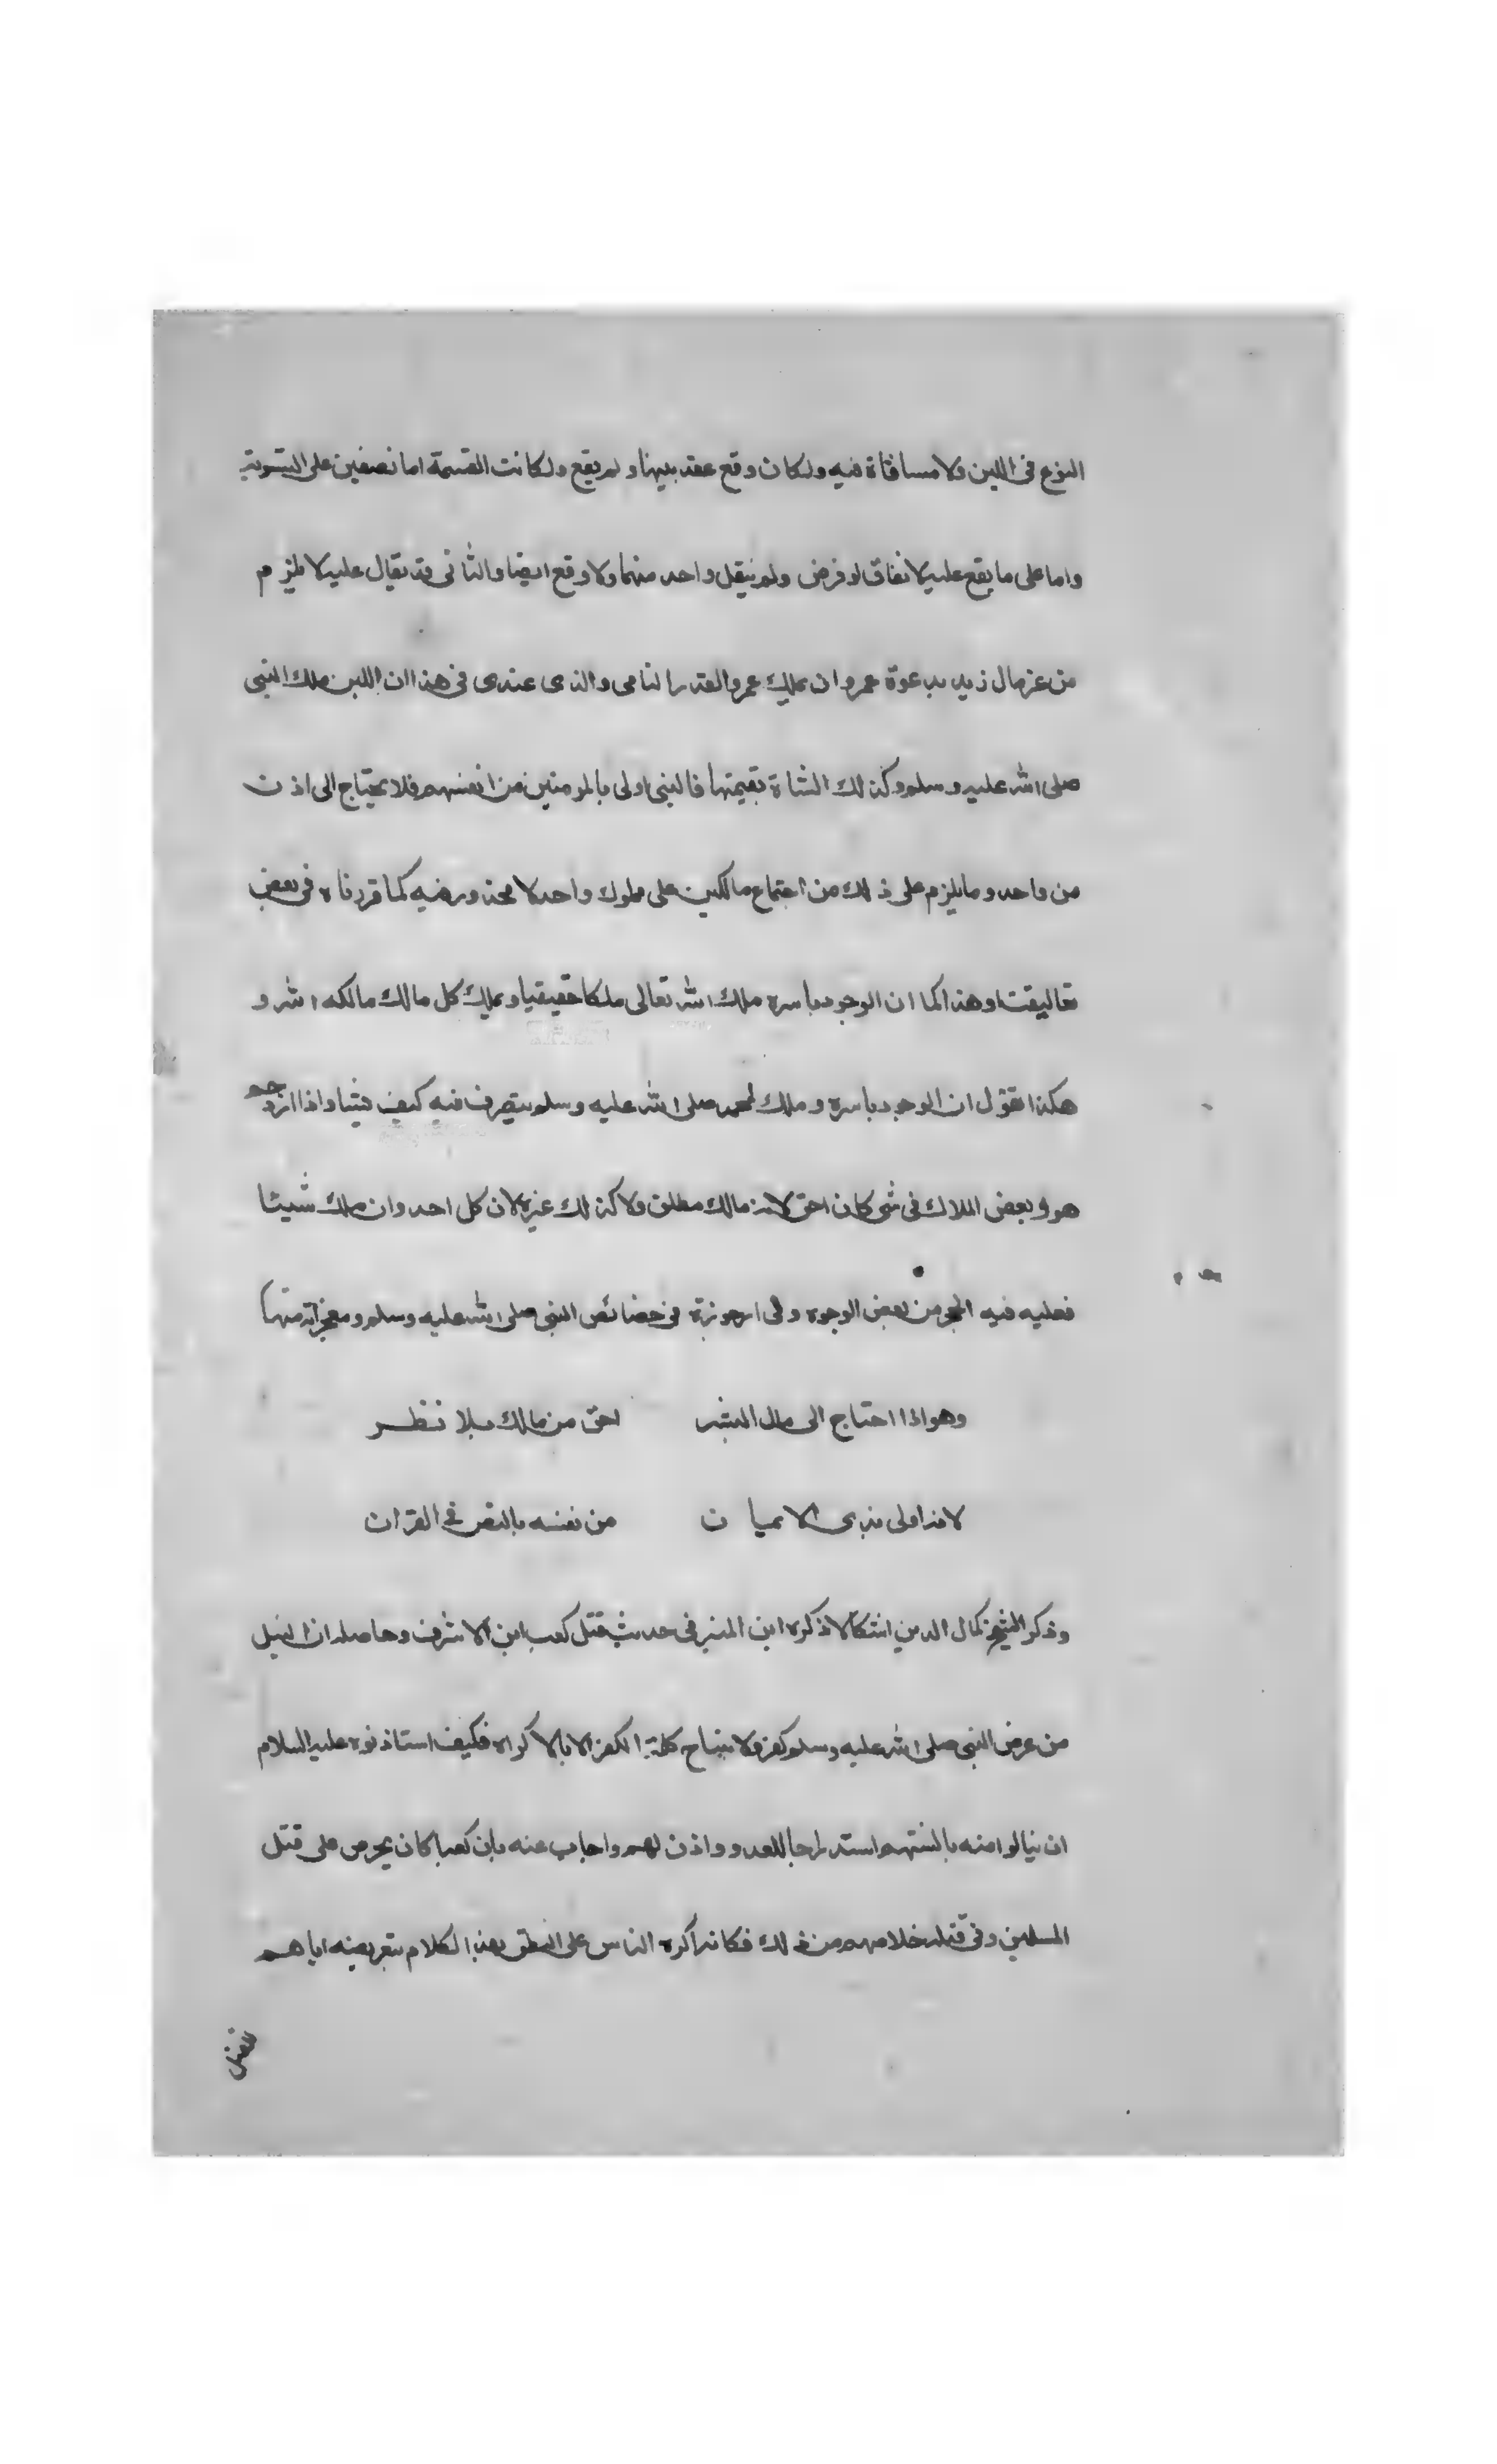 النوع فى اللبن ولا مساقاة فيه ولكان وقع عقد بينهما ولم يقع ولكانت القسمة اما نصفين على التسوية
واما على ما يقع عليه الاتفاق لو فرض ولم ينقل واحد منهما ولا وقع ايضا والثانى قد يقال عليه لا يلزم
من عز مال زيد بدعوة عمرو ان يملك عمرو القدر النامى والذى عندى فى هذا ان اللبن ملك النبى
صلى الله عليه وسلم وكذلك الشاة بقيمتها فالنبى اولى بالمومنين من انفسهم فلا يحتاج الى اذن
من واحد وما يلزم على ذلك من اجتماع مالكين على مملوك واحد لا محذور فيه كما قررناه فى بعض
تعاليقنا وهذا كما ان الوجود باسره ملك الله تعالى ملكا حقيقيا ويملك كل مالك مالكه الله و
هكذا نقول ان الوجود باسره وملك لمحمد صلى الله عليه وسلم يتصرف فيه كيف يشا واذا ازدحم
هو وبعض الملاك فى شى كان احق لانه مالك مطلق ولا كذلك غيره لان كل احد وان ملك شيئا
فعليه فيه الحجر من بعض الوجوه ولى ارجوزة فى خصائص النبى صلى الله عليه وسلم ومعجزاته منها
وهو اذا احتاج الى مال البشر احق من مالك بلا نظر
لانه اولى بذى الايمان من نفسه بالنص فى القران
وذكر الشيخ كمال الدين اشكالا ذكره ابن المنير فى حديث قتل كعب ابن الاشرف وحاصله ان النيل
من عرض النبى صلى الله عليه وسلم كفر ولا تباح كلمة الكفر الا بالاكراه فكيف استاذنوه عليه السلام
ان ينالوا منه بالسنتهم استدراجا للعدو واذن لهم واجاب عنه بان كعبا كان يحرص على قتل
المسلمين وفى قتله خلاصهم من ذلك فكانه اكره الناس على النطق بهذا الكلام بتعريضه اياهم
للقتل